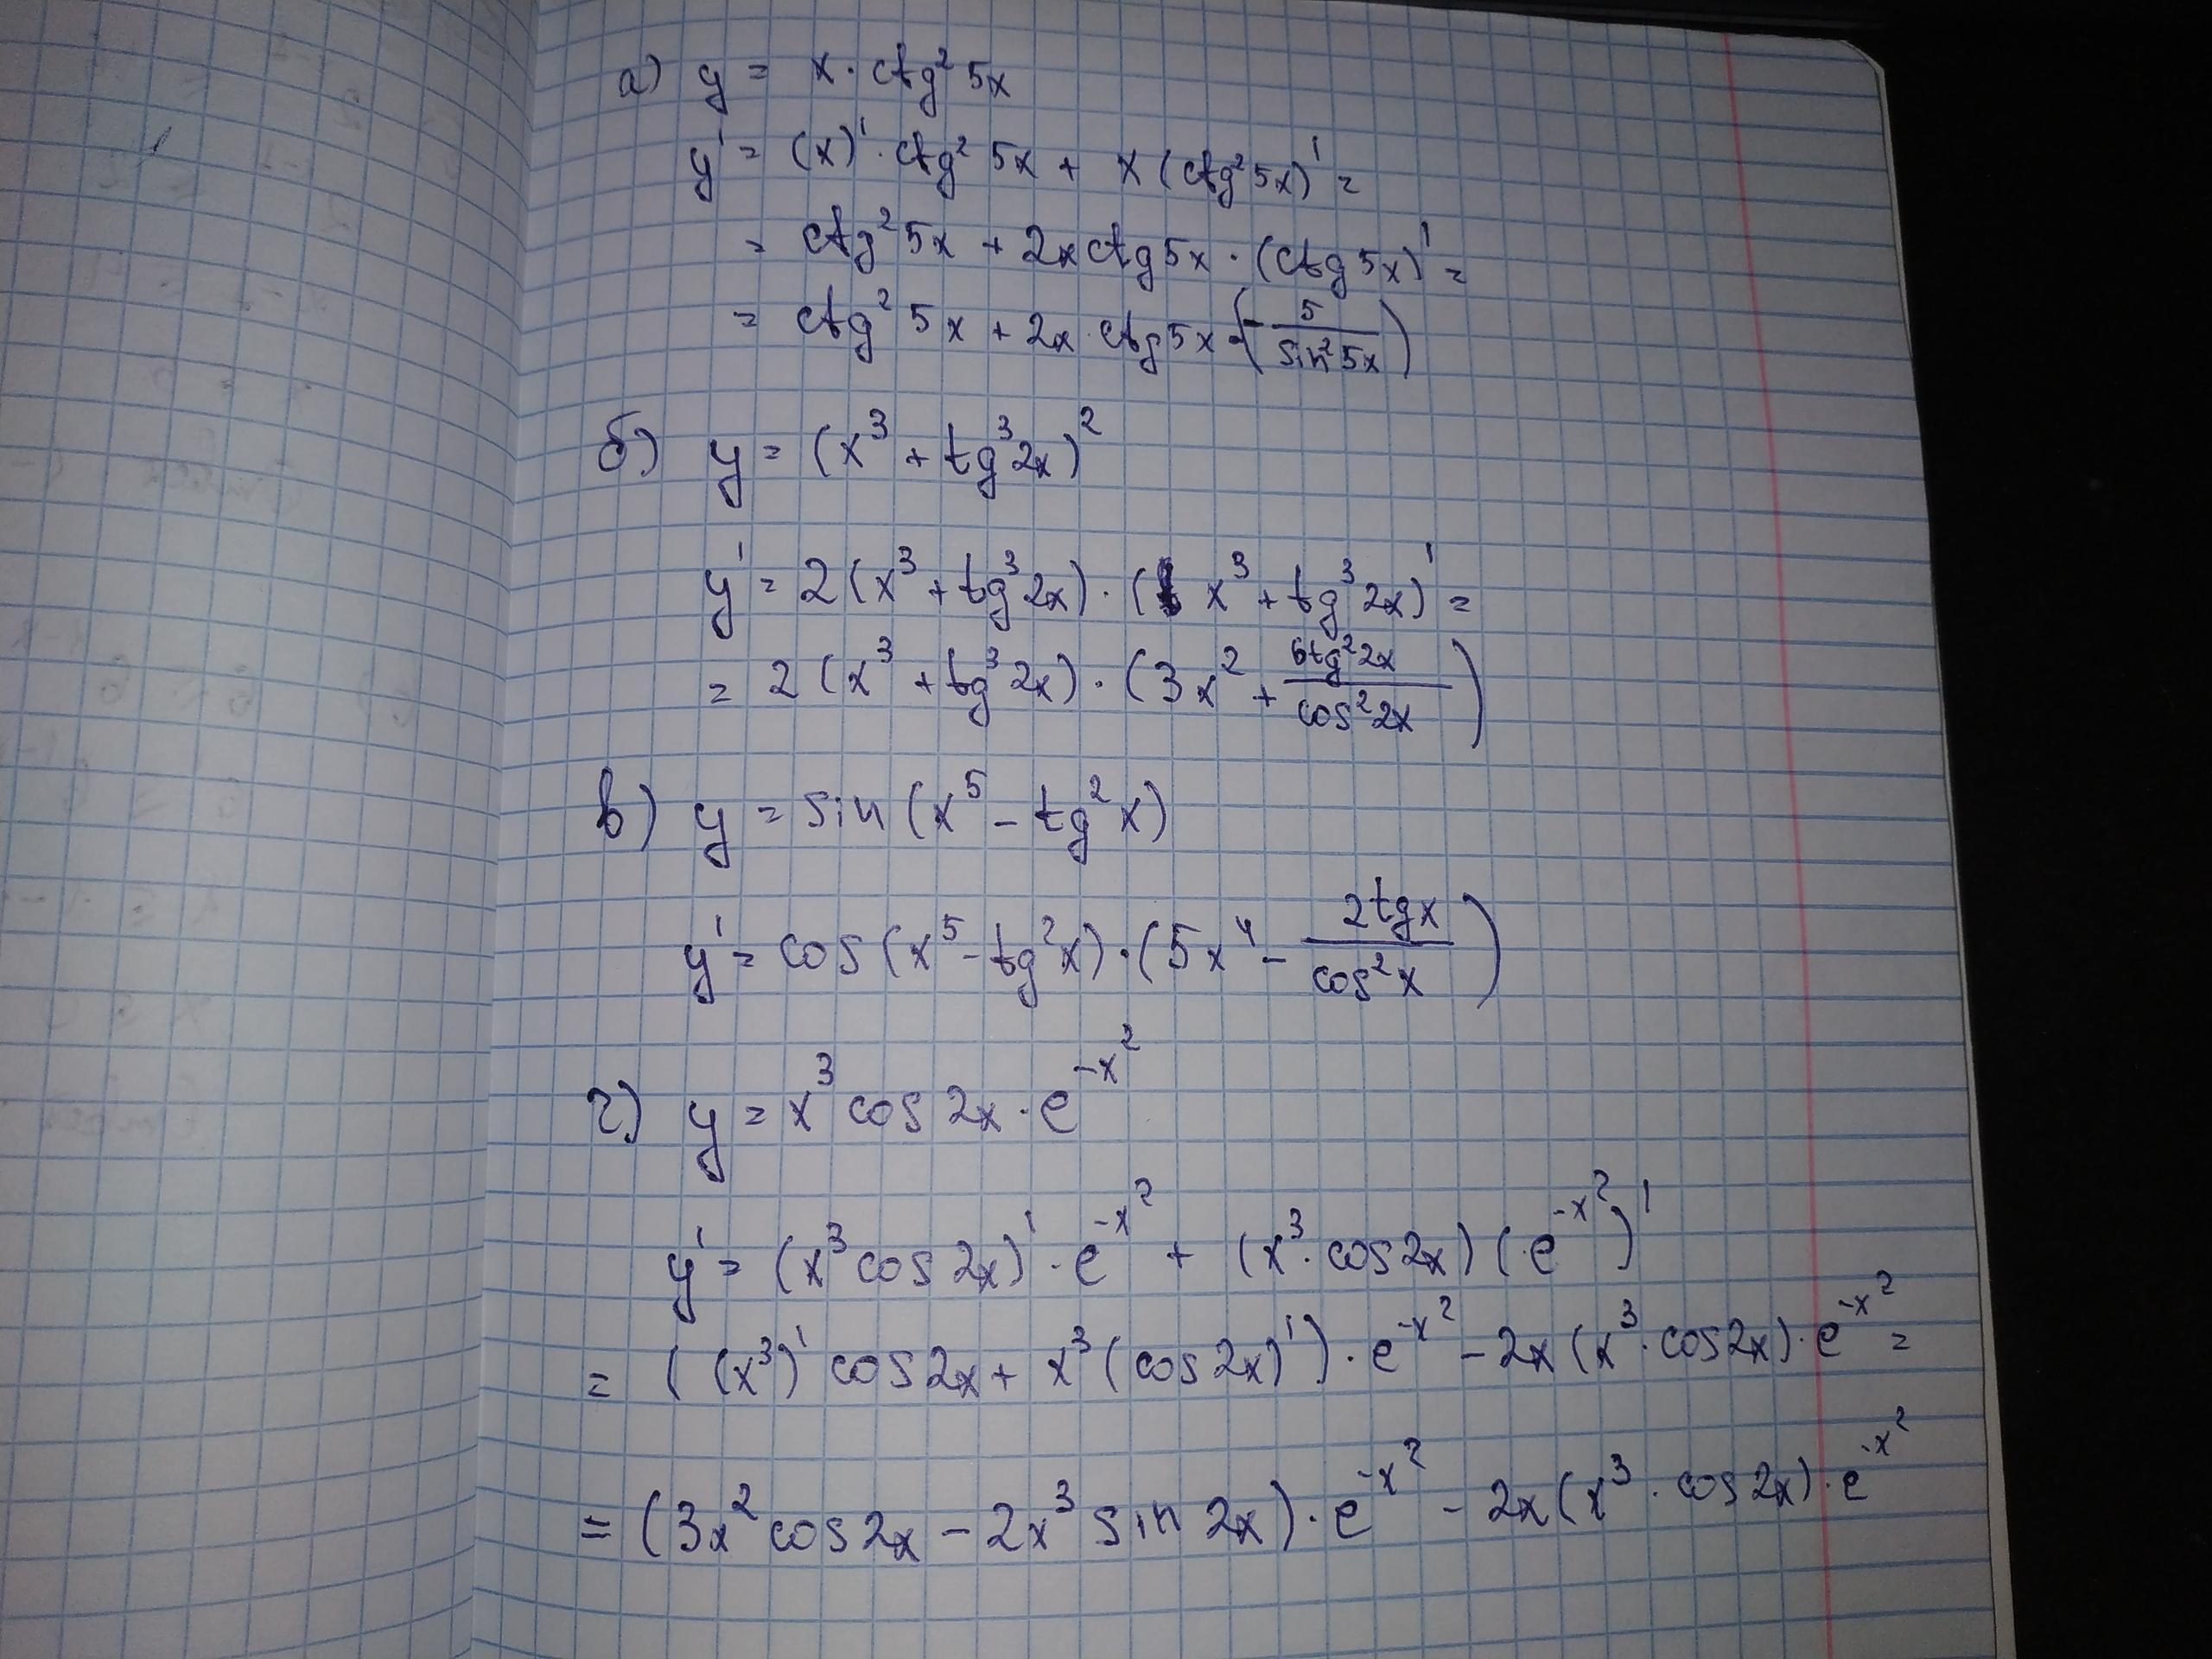 а) y = x · ctg² 5x
y' = (x)' · ctg² 5x + x (ctg² 5x)' =
= ctg² 5x + 2x ctg 5x · (ctg 5x)' =
= ctg² 5x + 2x · ctg 5x · (- 5/sin² 5x)
б) y = (x³ + tg³ 2x)²
y' = 2 (x³ + tg³ 2x) · (x³ + tg³ 2x)' =
= 2 (x³ + tg³ 2x) · (3x² + 6tg² 2x/cos² 2x)
в) y = sin (x⁵ - tg² x)
y' = cos (x⁵ - tg² x) · (5x⁴ - 2tgx/cos² x)
г) y = x³ cos 2x · e^(-x²)
y' = (x³ cos 2x)' · e^(-x²) + (x³ · cos 2x) (e^(-x²))'
= ((x³)' cos 2x + x³ (cos 2x)') · e^(-x²) - 2x (x³ · cos 2x) · e^(-x²) =
= (3x² cos 2x - 2x³ sin 2x) · e^(-x²) - 2x (x³ · cos 2x) · e^(-x²)